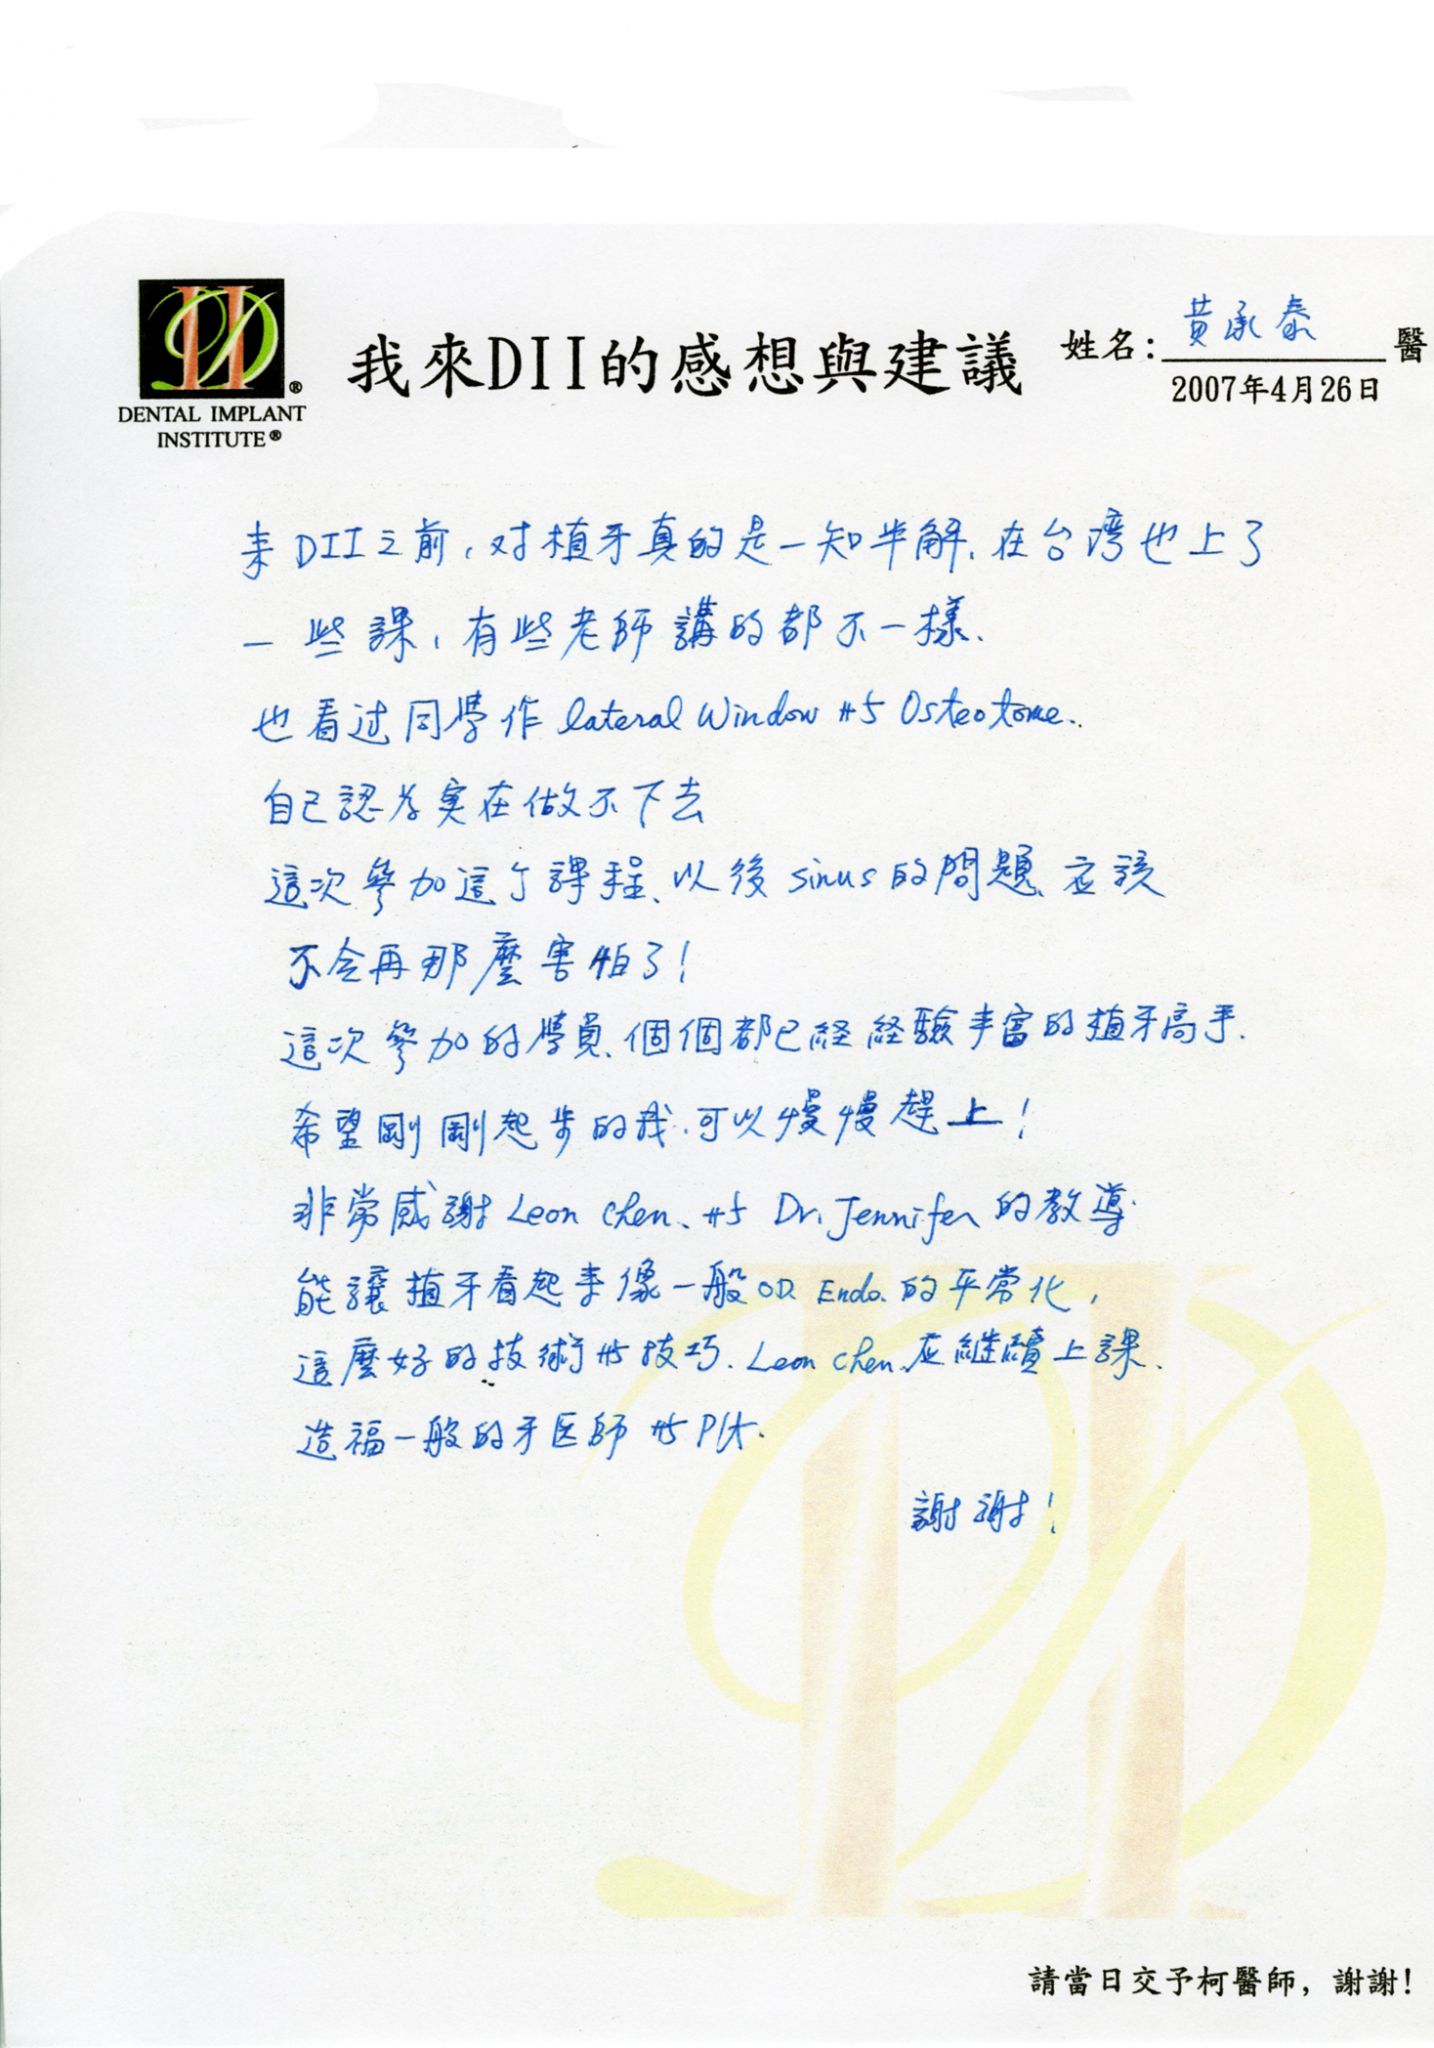 DENTAL IMPLANT
INSTITUTE®
我來DII的感想與建議
姓名:黃承泰 醫
2007年4月26日
来DII之前,对植牙真的是一知半解、在台湾也上了
一些課,有些老師講的都不一樣、
也看过同學作lateral Window 与 Osteotome..
自己認为実在做不下去
這次參加這个課程、以後sinus的問題、应該
不会再那麼害怕了!
這次參加的學員、個個都已経経驗丰富的植牙高手.
希望剛剛起步的我、可以慢慢趕上!
非常感謝Leon Chen、与 Dr. Jennifer的教導
能讓植牙看起来像一般OD. Endo.的平常化,
這麼好的技術与技巧、Leon Chen、应継續上課、
造福一般的牙医師与Pt.
謝謝!
請當日交予柯醫師，謝謝!